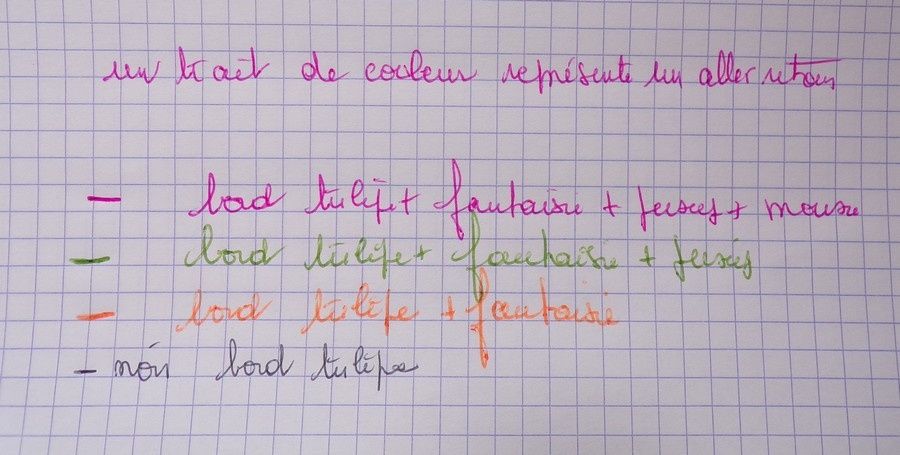 un trait de couleur représente un aller retour
- bord tulipe + fantaisie + fuseq + mouse
- bord tulipe + fantaisie + fuseq
- bord tulipe + fantaisie
- noir bord tulipe